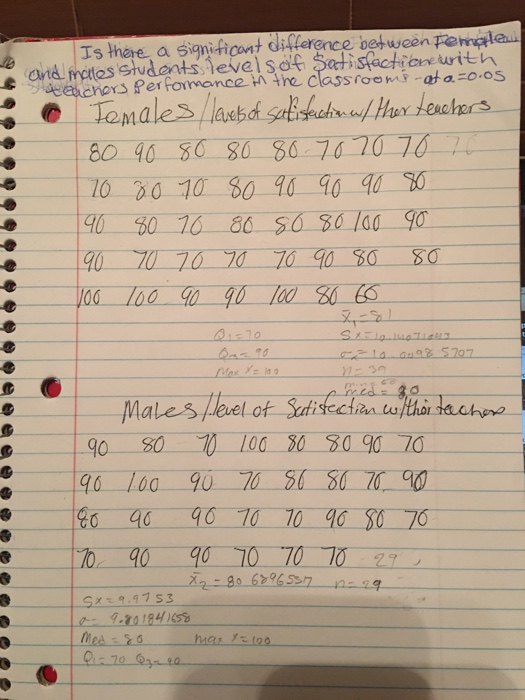 Is there a significant difference between Female
and males students levels of Satisfaction with
teachers Performance in the classrooms - at a=0.05
Females / levels of satisfaction w/ ther teachers
80 90 80 80 80 70 70 70 70
70 80 70 80 90 90 90 80
90 80 70 80 80 80 100 90
90 70 70 70 70 90 80 80
100 100 90 90 100 80 60
x̄₁ = 81
Q1 = 70
Q3 = 90
Max X = 100
n = 39
med = 80
Males / level of Satisfaction w/ thoir teachers
90 80 70 100 80 80 90 70
90 100 90 70 80 80 70 90
80 90 90 70 70 90 80 70
70 90 90 70 70 70 29
x̄₂ = 80.6896557 n = 29
Sx = 9.9753
σ = 9.801841658
Med = 80 max X = 100
Q1 = 70 Q3 = 90